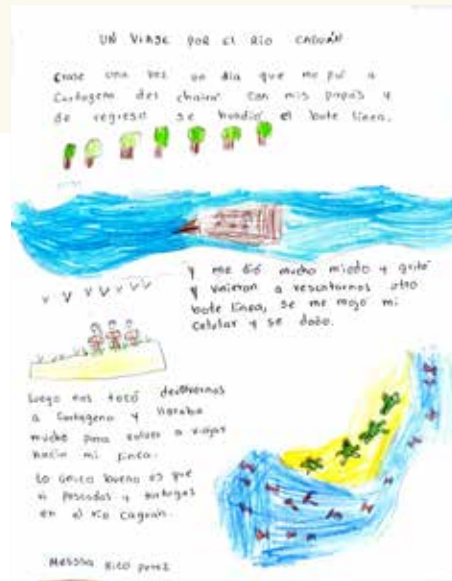 UN VIAJE POR EL RÍO CAGUÁN
Erase una vez un día que me fui a
Cartagena del chairá con mis papás y
de regreso se hundió el bote línea.
y me dió mucho miedo y grité
y vinieron a rescatarnos otro
bote línea, se me mojó mi
celular y se daño.
Luego nos tocó devolvernos
a Cartagena y lloraba
mucho para volver a viajar
hacia mi finca.
Lo único bueno es que
vi pescados y tortugas
en el río caguán.
Melissa Rico perez